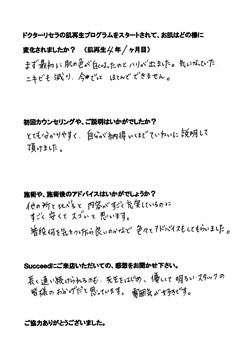 ドクターリセラの肌再生プログラムをスタートされて、お肌はどの様に
変化されましたか？ （肌再生 4年/ヶ月目）
まず最初に肌の色が白くなったのとハリが出ました。気になっていた
ニキビも減り、今ではほとんどできません。
初回カウンセリングや、ご説明はいかがでしたか？
とても分かりやすく、自分が納得いくまでていねいに説明して
頂けました。
施術や、施術後のアドバイスはいかがでしょうか？
他の所と比べると内容がすごく充実しているのに
すごく安くてスゴいと思います。
普段何を気をつけたら良いのかなど色々とアドバイスもしてもらいました。
Succeedにご来店いただいての、感想をお聞かせ下さい。
長く通い続けられるのも、先生をはじめ、優しくて明るいスタッフの
皆様のおかげだと思っています。雰囲気が好きです。
ご協力ありがとうございました。